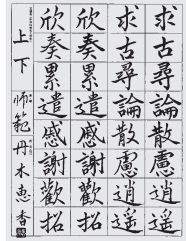 求古尋論散慮逍遥
求古尋論散慮逍遥
欣奏累遣慼謝歡招
欣奏累遣慼謝歡招
上下 師範 丹木恵香